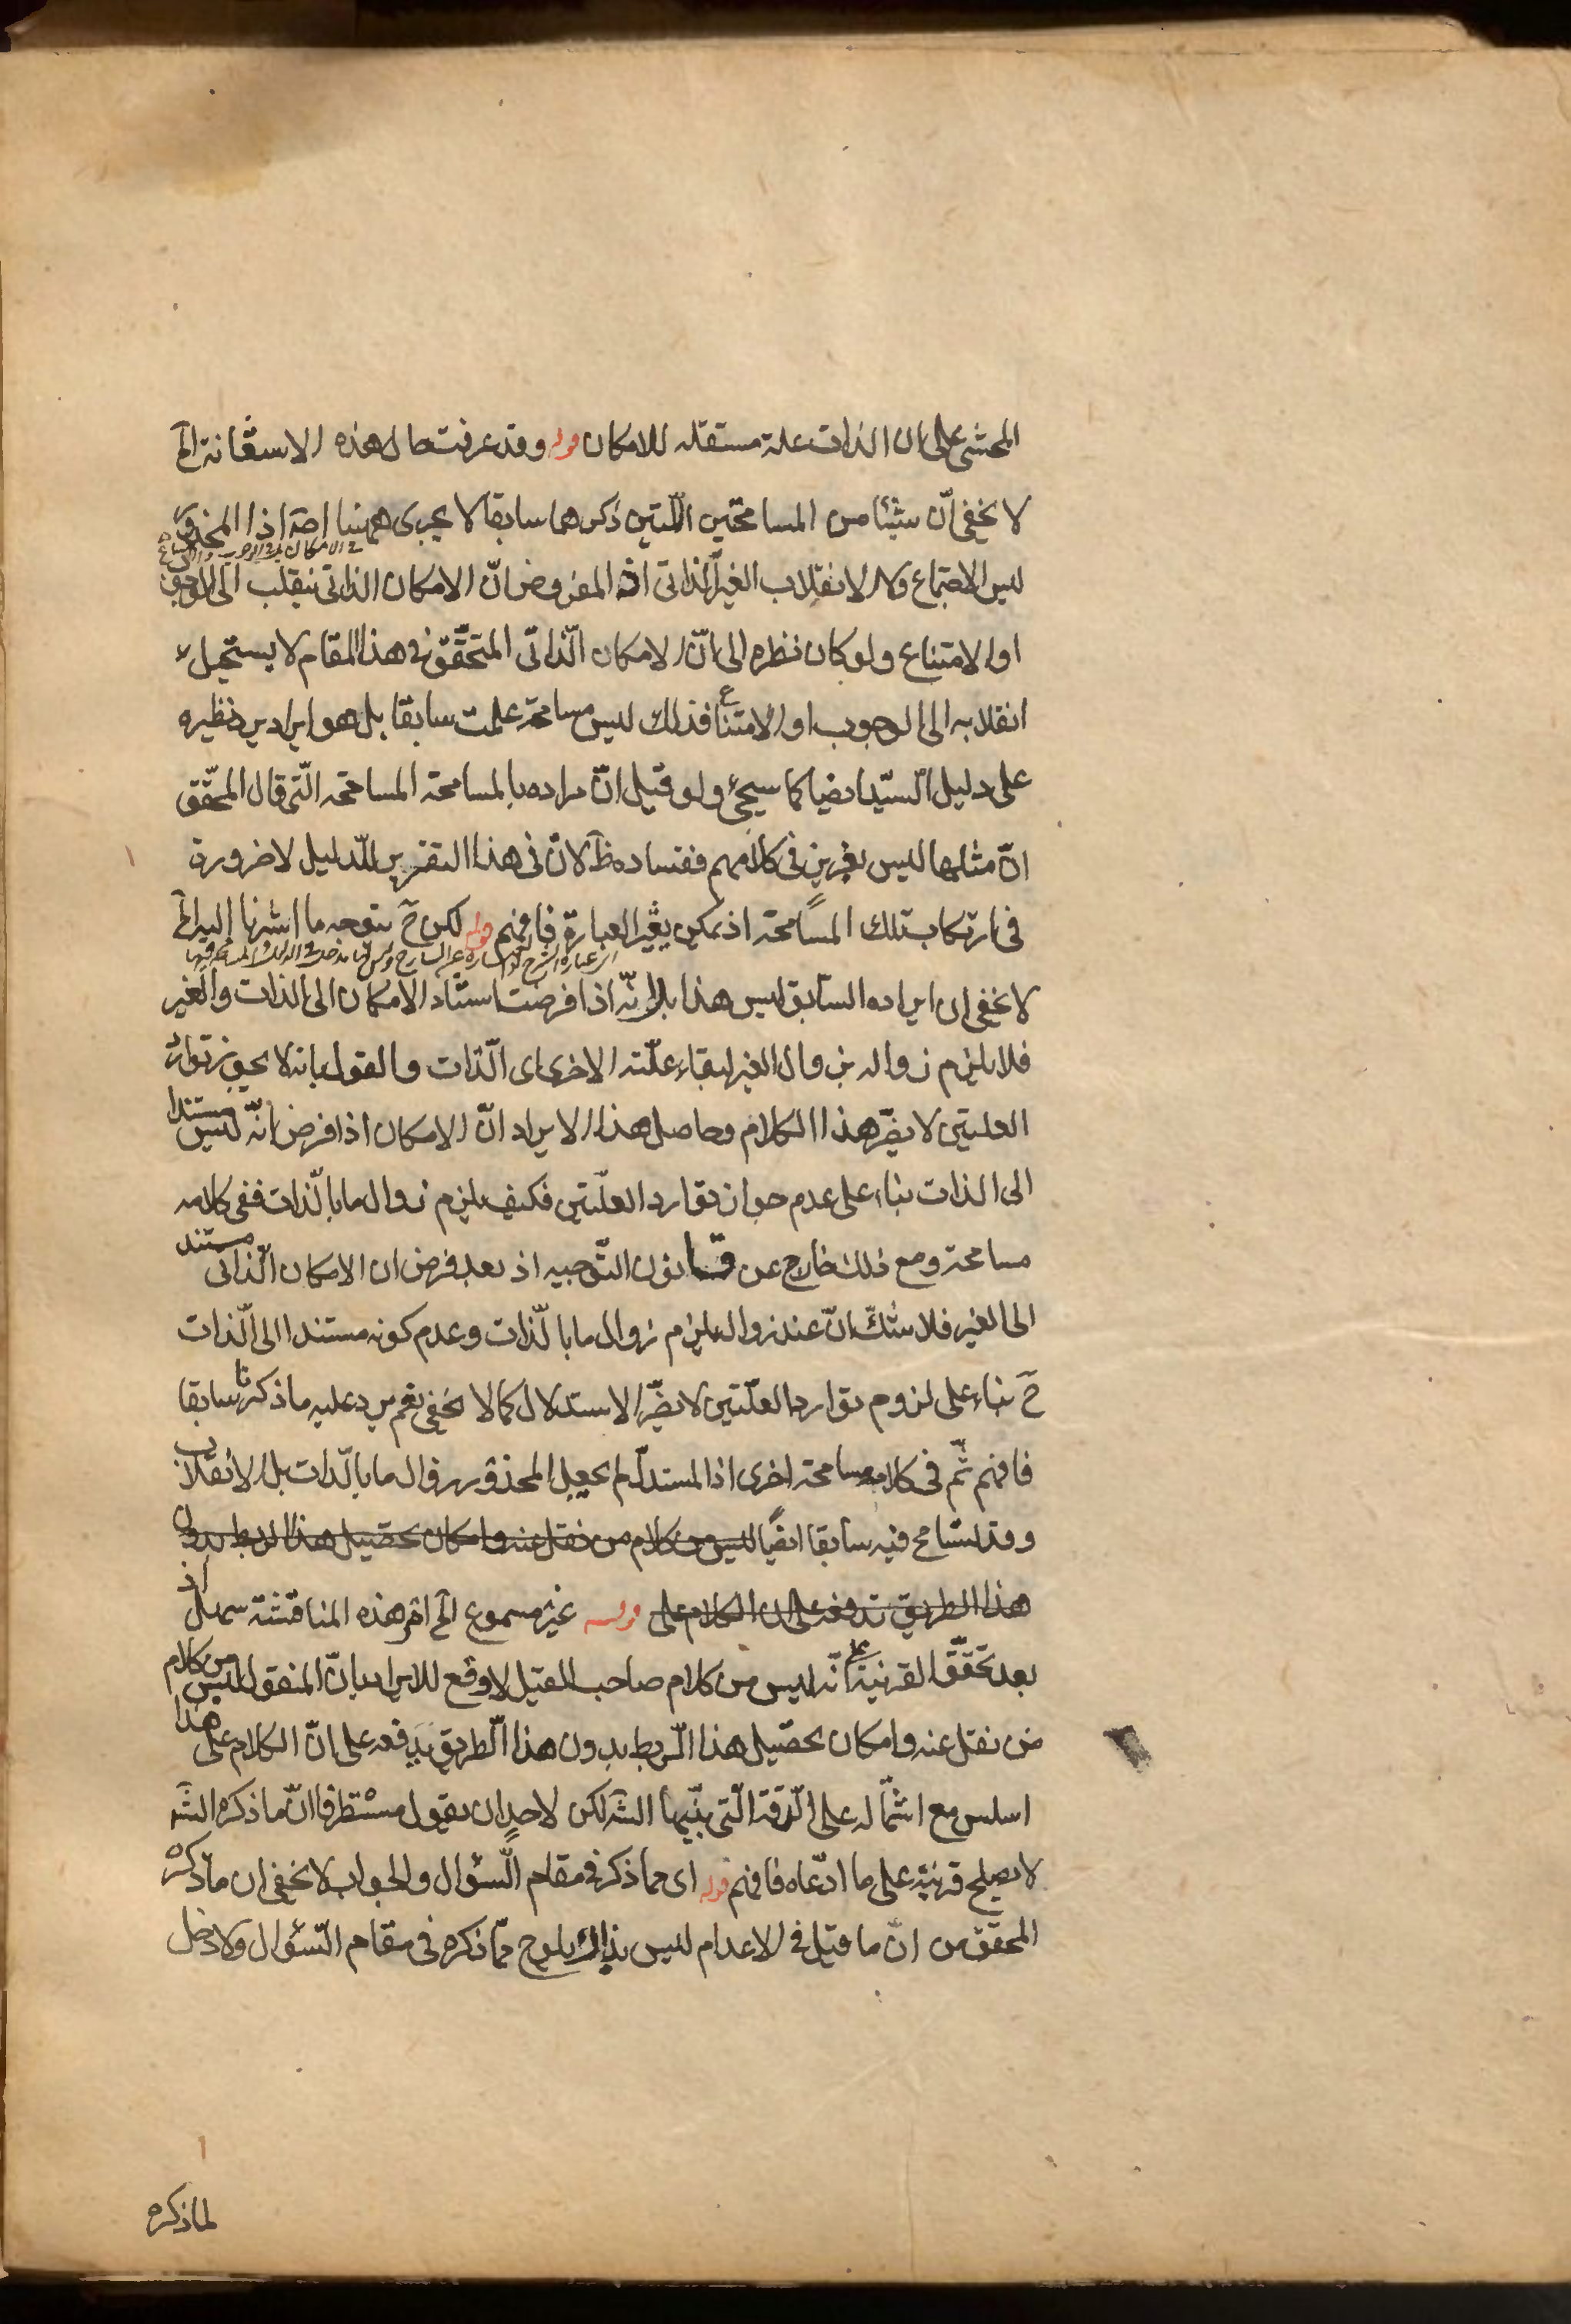 المحشى على ان الذات علة مستقله للامكان قوله وقد عرفت حال هذه الاستعانة الخ
لا يخفى انّ شيئا من المسامحتين اللّتين ذكرهما سابقا لا يجرى ههنا اصلا اذا المحذور
فى الامكان
ليس الاجتماع ولا الانقلاب الغير الذاتى اذ المفروض انّ الامكان الذاتى ينقلب الى الوجوب
او الامتناع ولو كان نظره الى انّ الامكان الّذاتى المتحقّق فى هذا المقام لا يستحيل
انقلابه الى الوجوب او الامتناع فذلك ليس مسامحة علمت سابقا بل هو ايراد يرد نظيره
على دليل السيّد ايضا كما سيجئ ولو قيل انّ مراده بالمسامحة المسامحة الّتى قال المحقّق
انّ مثلها ليس بغريز فى كلامهم ففساده ظ لانّ فى هذا التقرير للّدليل لا ضرورة
فى ارتكاب تلك المسامحة اذ يمكن تغيّر العبارة فافهم قوله لكن ح يتوجه ما اشرنا اليه الخ
لا يخفى ان ايراده السّابق ليس هذا بل انّه اذا فرضت استناد الامكان الى الذات والغير
فلا يلزم زواله بزوال الغير لبقاء علّته الاخرى اى الّذات والقول بانه لا يجوز توارد
العلتين لا يضرّ هذا الكلام وحاصل هذا الايراد انّ الامكان اذا فرض انّه ليس مستندا
الى الذات بناء على عدم جواز توارد العلّتين فكيف يلزم زوال ما بالّذات ففى كلامه
مسامحة ومع ذلك خارج عن قانون التّوجيه اذ بعد فرض ان الامكان الّذاتى مستند
الى الغير فلا شكّ انّ عند زواله يلزم زوال ما بالّذات وعدم كونه مستندا الى الّذات
ح بناء على لزوم توارد العلّتين لا يضرّ الاستدلال كما لا يخفى نعم يرد عليه ما ذكرنا سابقا
فافهم ثمّ فى كلامه مسامحة اخرى اذ المستدلّ لم يجعل المحذور زوال ما بالّذات بل الانقلاب
وقد تسامح فيه سابقا ايضًا ليس من كلام من نقل عنه وامكان تحصيل هذا الربط بدون
هذا الطريق تدفعه على ان الكلام على قوله غير مسموع الخ امر هذه المناقشة سهل اذ
بعد تحقّق القرينة على انّه ليس من كلام صاحب القيل لا وقع للايراد بانّ المنقول ليس من كلام
من نقل عنه وامكان تحصيل هذا الربط بدون هذا الّطريق يدفعه على انّ الكلام على هذا
اسلس مع اشتماله على الّدقة الّتى بيّنها الشّ لكن لاحد ان يقول مستظرفا انّ ما ذكره الشّ
لا يصلح قرينة على ما ادّعاه فافهم قوله اى مما ذكر فى مقام السّؤال والجواب لا يخفى ان ما ذكره
المحقّق من انّ ما قيل فى الاعدام ليس بذاك يلوح ممّا ذكره فى مقام السّؤال ولا دخل
لما ذكره